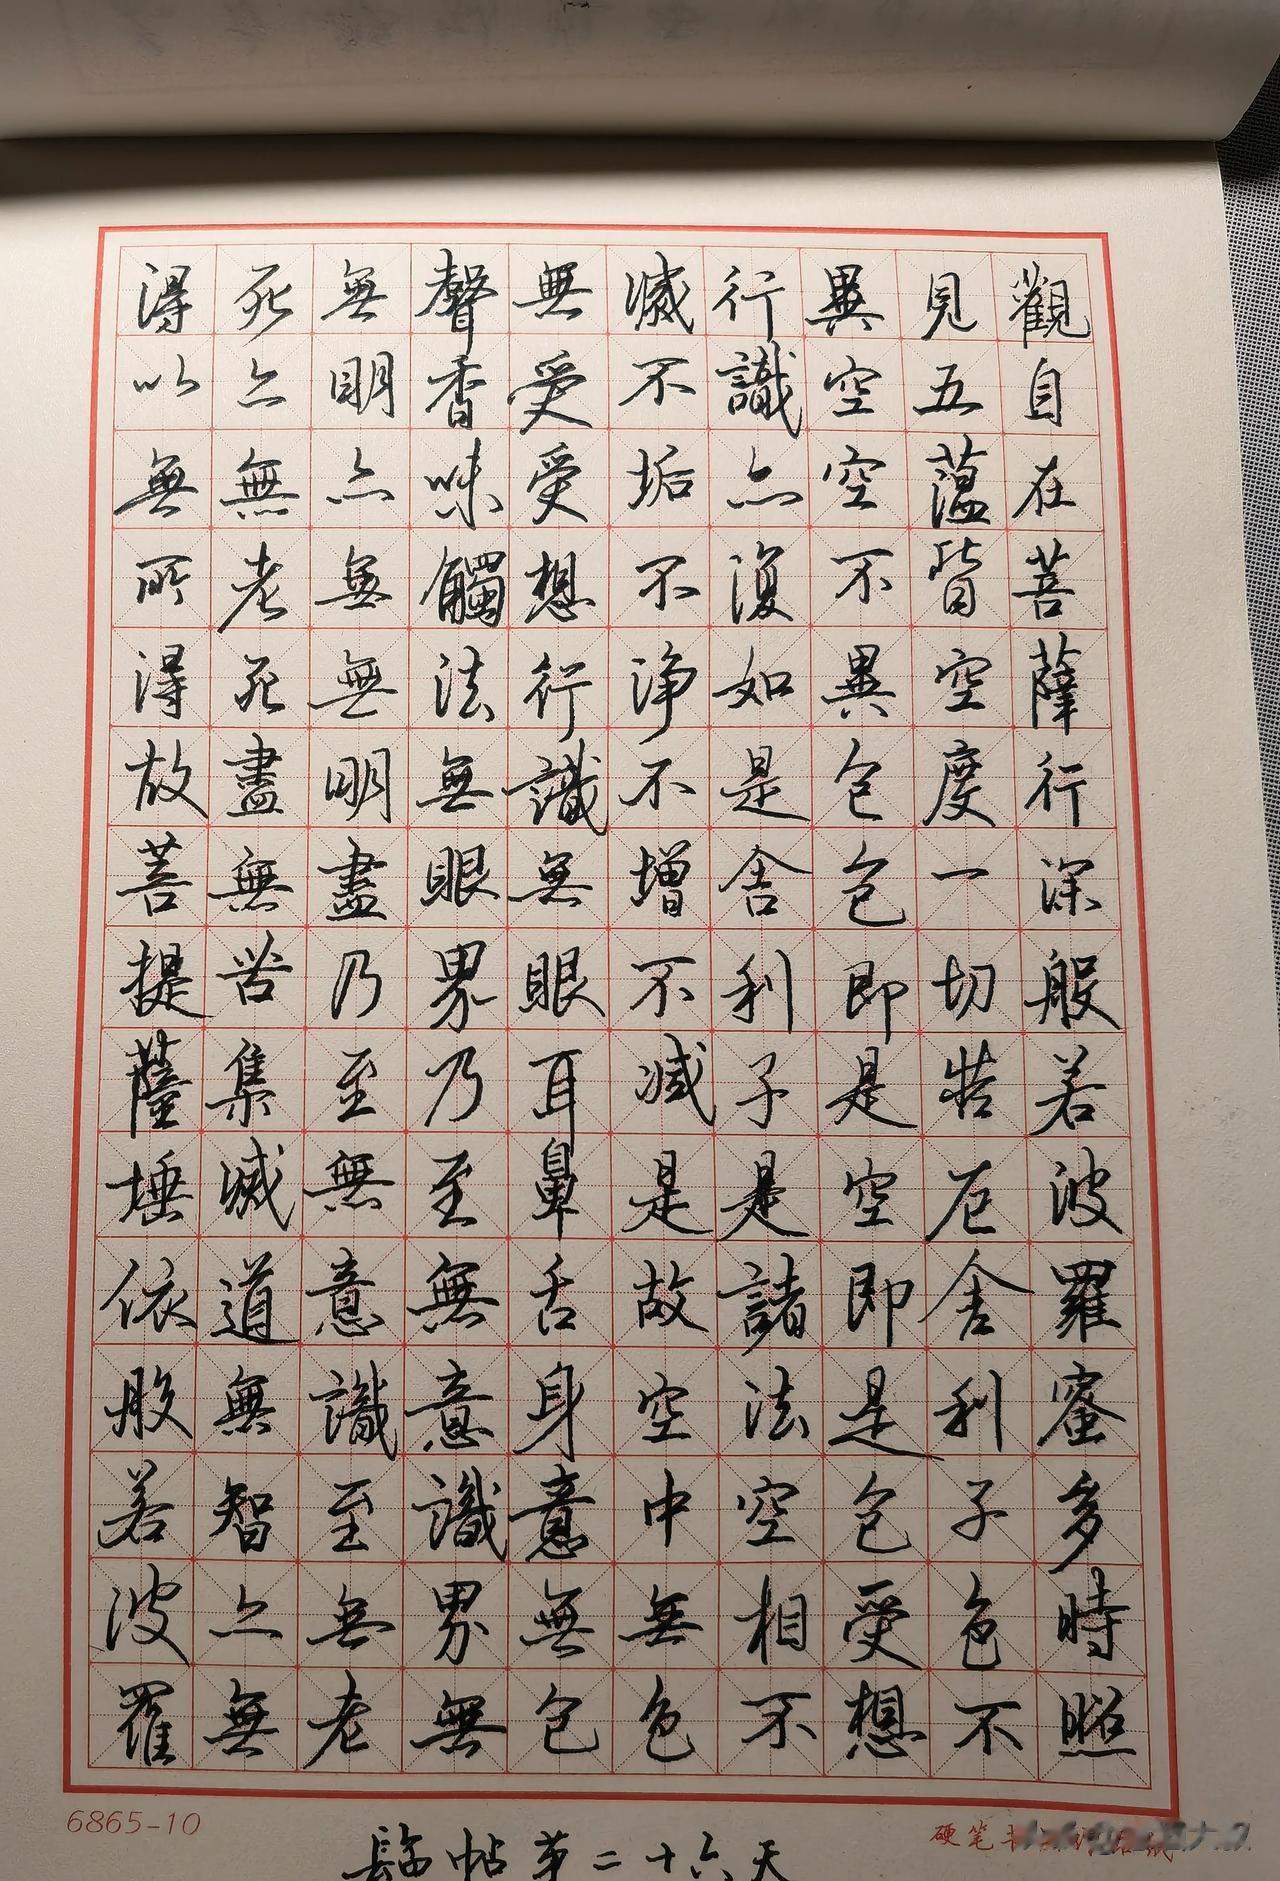 觀自在菩薩行深般若波羅蜜多時照
見五蘊皆空度一切苦厄舍利子色不
異空空不異色色即是空即是色受想
行識亦復如是舍利子是諸法空相不
滅不垢不淨不增不減是故空中無色
無受受想行識無眼耳鼻舌身意無色
聲香味觸法無眼界乃至無意識界無
無明亦無無明盡乃至無意識至無老
死亦無老死盡無苦集滅道無智亦無
得以無所得故菩提薩埵依般若波羅
6865-10
硬笔
臨帖第二十六天